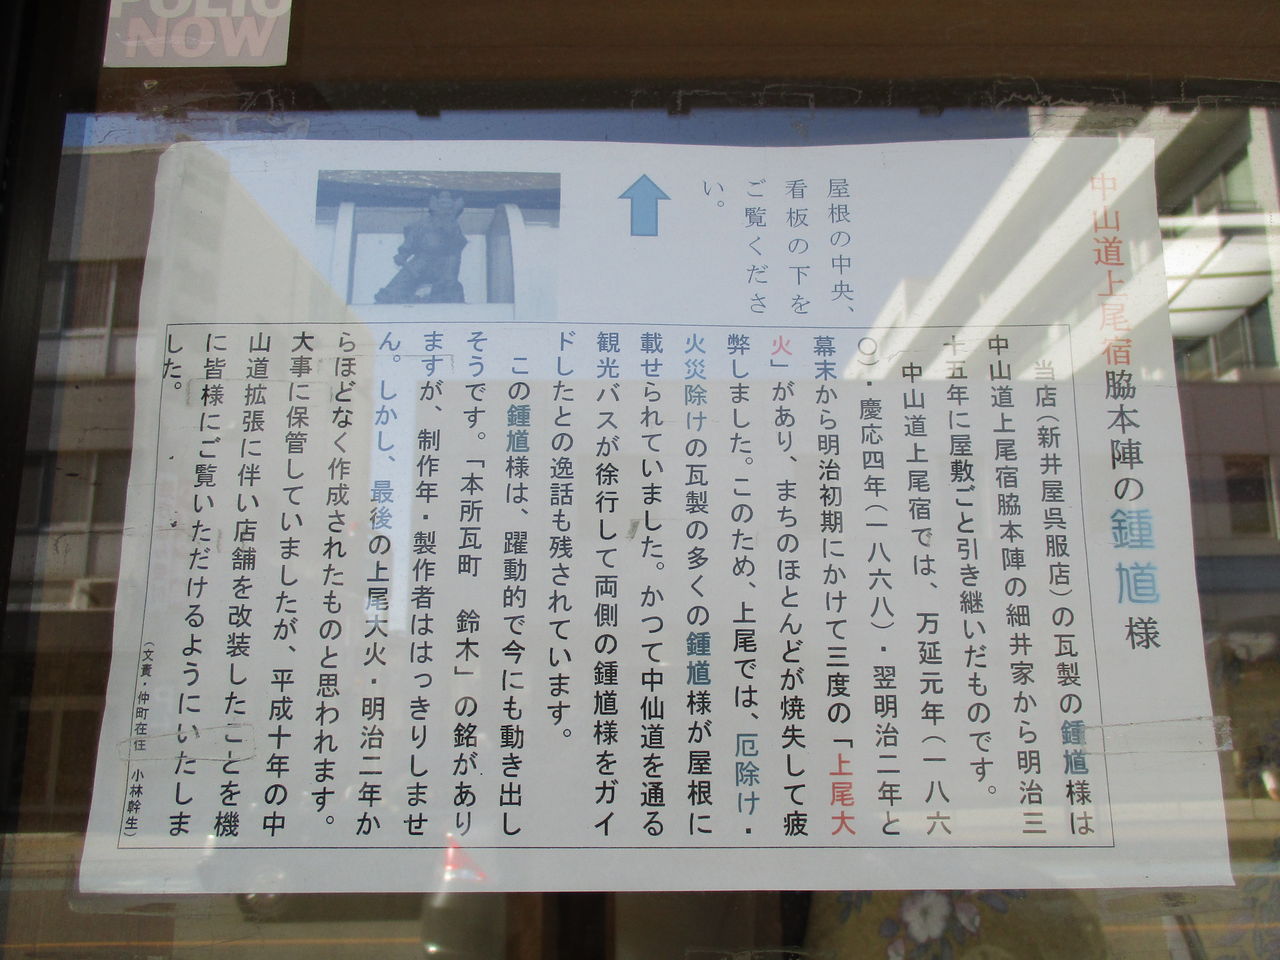 POLIO
NOW
中山道上尾宿脇本陣の鍾馗様
屋根の中央、
看板の下を
ご覧くださ
い。
当店（新井屋呉服店）の瓦製の鍾馗様は
中山道上尾宿脇本陣の細井家から明治三
十五年に屋敷ごと引き継いだものです。
中山道上尾宿では、万延元年（一八六
〇）・慶応四年（一八六八）・翌明治二年と
幕末から明治初期にかけて三度の「上尾大
火」があり、まちのほとんどが焼失して疲
弊しました。このため、上尾では、厄除け・
火災除けの瓦製の多くの鍾馗様が屋根に
載せられていました。かつて中仙道を通る
観光バスが徐行して両側の鍾馗様をガイ
ドしたとの逸話も残されています。
この鍾馗様は、躍動的で今にも動き出し
そうです。「本所瓦町　鈴木」の銘があり
ますが、制作年・製作者ははっきりしませ
ん。しかし、最後の上尾大火・明治二年か
らほどなく作成されたものと思われます。
大事に保管していましたが、平成十年の中
山道拡張に伴い店舗を改装したことを機
に皆様にご覧いただけるようにいたしま
した。
（文責・仲町在住　小林幹生）